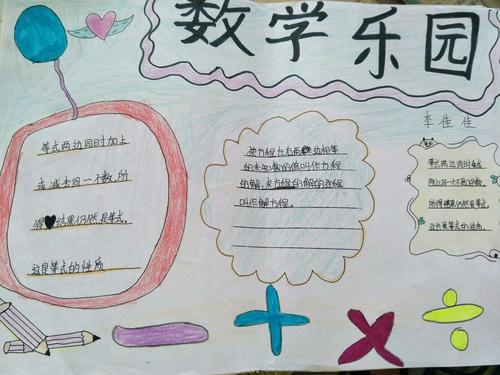 数学乐园
李佳佳
等式两边同时加上
或减去同一个数,所
得结果仍然是等式。
这是等式的性质
使方程左右两边相等
的未知数的值叫作方程
的解,求方程的解的过程
叫作解方程。
等式两边同时乘或
除以同一个不为0的数,
所得结果仍然是等式。
这也是等式的性质。